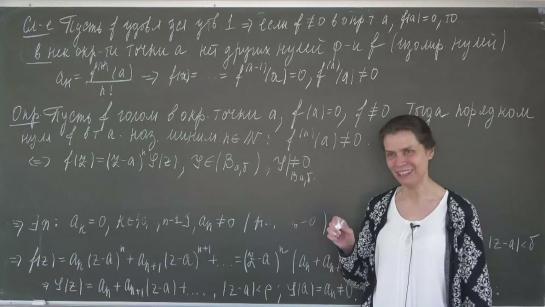 Сл-е Пусть f удовл-ет утв 1 ⇒ если f ≢ 0 в окр т a, f(a)=0, то
в нек окр-ти точки a нет других нулей ф-и f (изолир нулей)
aₙ = f⁽ⁿ⁾(a)/n! ⇒ f(a)= ... = f⁽ⁿ⁻¹⁾(a)=0, f⁽ⁿ⁾(a) ≠ 0
Опр Пусть f голом в окр. точки a, f(a)=0, f ≢ 0. Тогда порядком
нуля f в т a. наз. миним n∈ℕ: f⁽ⁿ⁾(a) ≠ 0.
⇔ f(z)=(z-a)ⁿ φ(z), φ∈ (B_{a,δ}), φ|_{B_{a,δ}} ≠ 0
⇒ ∃n: aₖ=0, k∈{0, ,n-1}, aₙ ≠ 0
⇒ f(z)= aₙ(z-a)ⁿ + aₙ₊₁(z-a)ⁿ⁺¹ + ... = (z-a)ⁿ (aₙ + aₙ₊
|z-a|<δ
⇒ φ(z) = aₙ + aₙ₊₁(z-a) + ..., |z-a|<ρ, φ(a) = aₙ ≠